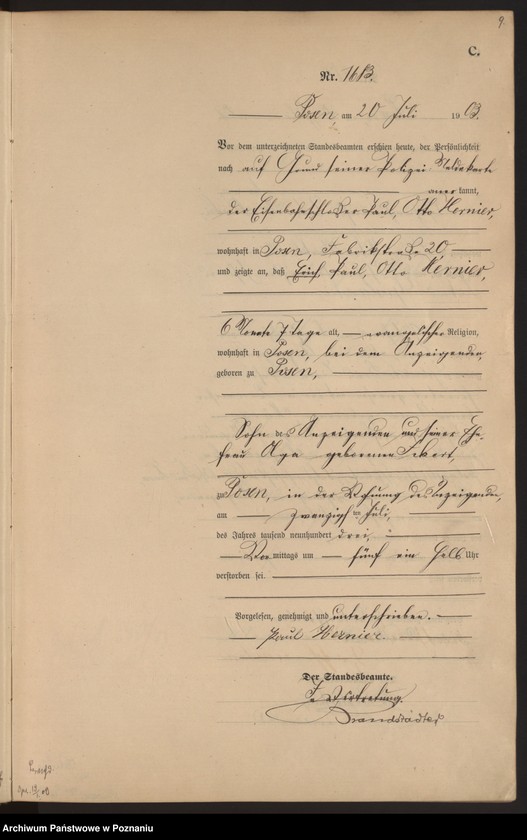 9.
C.
Nr. 1683.
Posen am 20 Juli 1903.
Vor dem unterzeichneten Standesbeamten erschien heute, der Persönlichkeit
nach auf Grund seiner Polizei Meldekarte
anerkannt,
der Eisenbahnschlosser Paul, Otto Hernier,
wohnhaft in Posen, Fabrikstraße 20
und zeigte an, daß Erich, Paul, Otto Hernier,
6 Monate 7 Tage alt, evangelischer Religion,
wohnhaft in Posen, bei dem Anzeigenden,
geboren zu Posen,
Sohn des Anzeigenden und seiner Ehe-
frau geborenen Eckert,
zu Posen, in der Wohnung des Anzeigenden,
am zwanzigsten Juli,
des Jahres tausend neunhundert drei,
Vormittags um fünf ein halb Uhr
verstorben sei.
Vorgelesen, genehmigt und unterschrieben.
Paul Hernier
Der Standesbeamte.
In Vertretung.
Brandstädter
Archiwum Państwowe w Poznaniu